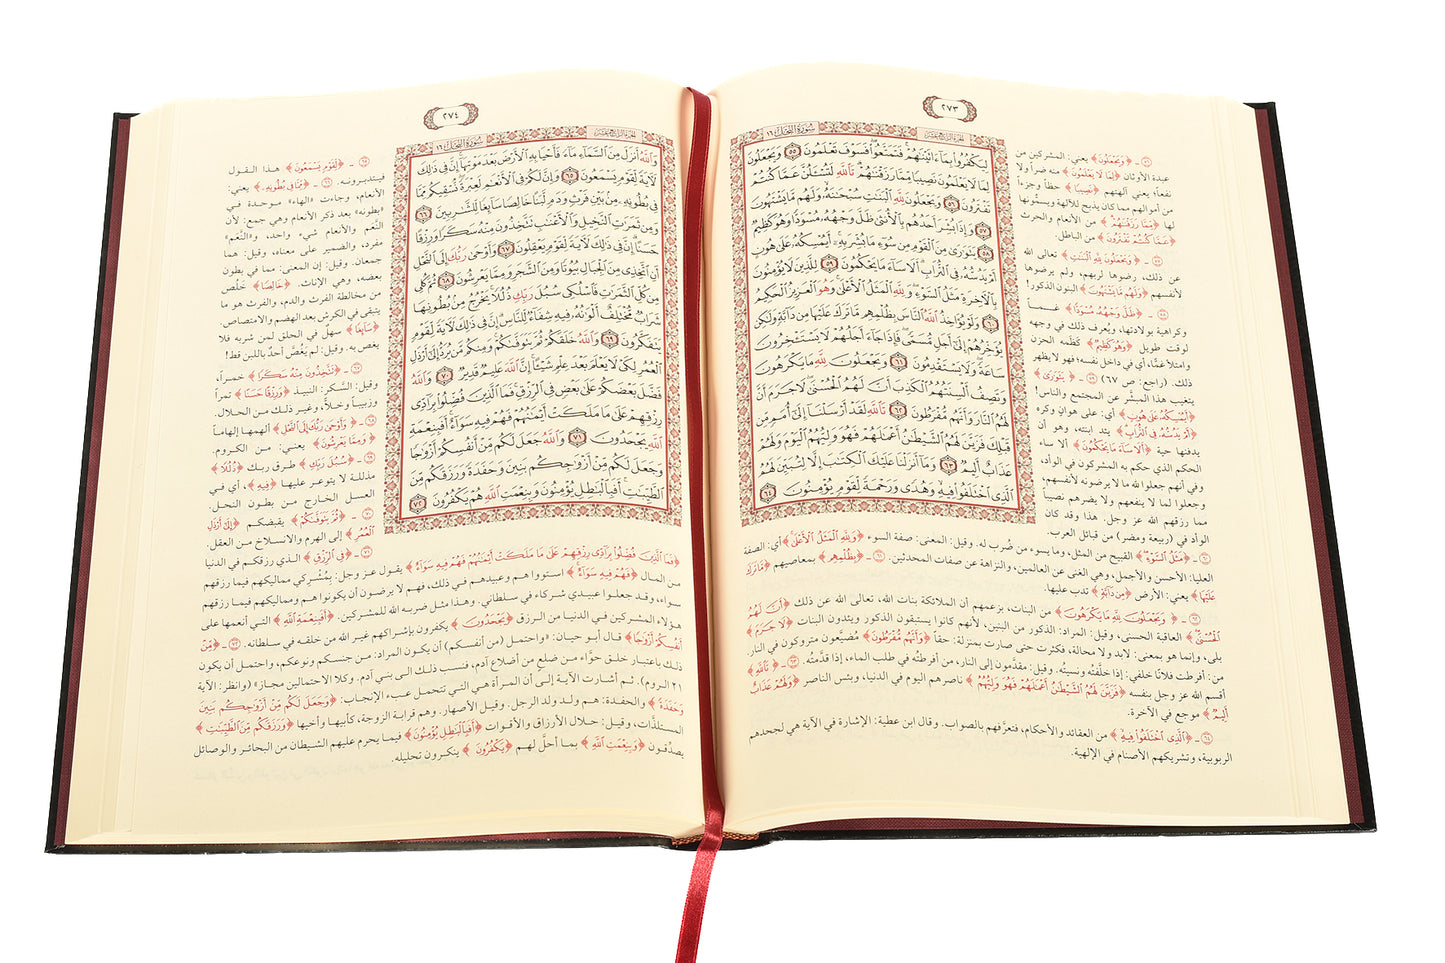 ٢٧٣
سُورَةُ النَّحْلِ ١٦
الجزء الرابع عشر
لِيَكْفُرُوا۟ بِمَآ ءَاتَيْنَٰهُمْ فَتَمَتَّعُوا۟ فَسَوْفَ تَعْلَمُونَ ٥٥ وَيَجْعَلُونَ
لِمَا لَا يَعْلَمُونَ نَصِيبًا مِّمَّا رَزَقْنَٰهُمْ تَٱللَّهِ لَتُسْـَٔلُنَّ عَمَّا كُنتُمْ
تَفْتَرُونَ ٥٦ وَيَجْعَلُونَ لِلَّهِ ٱلْبَنَٰتِ سُبْحَٰنَهُۥ وَلَهُم مَّا يَشْتَهُونَ
٥٧ وَإِذَا بُشِّرَ أَحَدُهُم بِٱلْأُنثَىٰ ظَلَّ وَجْهُهُۥ مُسْوَدًّا وَهُوَ كَظِيمٌ
٥٨ يَتَوَٰرَىٰ مِنَ ٱلْقَوْمِ مِن سُوٓءِ مَا بُشِّرَ بِهِۦٓ أَيُمْسِكُهُۥ عَلَىٰ هُونٍ
أَمْ يَدُسُّهُۥ فِى ٱلتُّرَابِ أَلَا سَآءَ مَا يَحْكُمُونَ ٥٩ لِلَّذِينَ لَا يُؤْمِنُونَ
بِٱلْءَاخِرَةِ مَثَلُ ٱلسَّوْءِ وَلِلَّهِ ٱلْمَثَلُ ٱلْأَعْلَىٰ وَهُوَ ٱلْعَزِيزُ ٱلْحَكِيمُ
٦٠ وَلَوْ يُؤَاخِذُ ٱللَّهُ ٱلنَّاسَ بِظُلْمِهِم مَّا تَرَكَ عَلَيْهَا مِن دَآبَّةٍ وَلَٰكِن
يُؤَخِّرُهُمْ إِلَىٰٓ أَجَلٍ مُّسَمًّى فَإِذَا جَآءَ أَجَلُهُمْ لَا يَسْتَـْٔخِرُونَ
سَاعَةً وَلَا يَسْتَقْدِمُونَ ٦١ وَيَجْعَلُونَ لِلَّهِ مَا يَكْرَهُونَ
وَتَصِفُ أَلْسِنَتُهُمُ ٱلْكَذِبَ أَنَّ لَهُمُ ٱلْحُسْنَىٰ لَا جَرَمَ أَنَّ
لَهُمُ ٱلنَّارَ وَأَنَّهُم مُّفْرَطُونَ ٦٢ تَٱللَّهِ لَقَدْ أَرْسَلْنَآ إِلَىٰٓ أُمَمٍ مِّن
قَبْلِكَ فَزَيَّنَ لَهُمُ ٱلشَّيْطَٰنُ أَعْمَٰلَهُمْ فَهُوَ وَلِيُّهُمُ ٱلْيَوْمَ وَلَهُمْ
عَذَابٌ أَلِيمٌ ٦٣ وَمَآ أَنزَلْنَا عَلَيْكَ ٱلْكِتَٰبَ إِلَّا لِتُبَيِّنَ لَهُمُ
ٱلَّذِى ٱخْتَلَفُوا۟ فِيهِ وَهُدًى وَرَحْمَةً لِّقَوْمٍ يُؤْمِنُونَ ٦٤
٥٦ - ﴿وَيَجْعَلُونَ﴾ يعني: المشركين من
عبدة الأوثان ﴿لِمَا لَا يَعْلَمُونَ﴾ منه ضراً ولا
نفعاً؛ يعني آلهتهم ﴿نَصِيبًا﴾ حظاً وجزءاً
من أموالهم مما كان يذبح للآلهة ويسمُّونها
لها ﴿مِمَّا رَزَقْنَٰهُمْ﴾ من الأنعام والحرث
﴿عَمَّا كُنتُمْ تَفْتَرُونَ﴾ من الباطل.
٥٧ - ﴿وَيَجْعَلُونَ لِلَّهِ ٱلْبَنَٰتِ﴾ تعالى الله
عن ذلك، رضوها لربهم، ولم يرضوها
لأنفسهم ﴿وَلَهُم مَّا يَشْتَهُونَ﴾ البنون الذكور!
٥٨ - ﴿ظَلَّ وَجْهُهُۥ مُسْوَدًّا﴾ غـمـاً
وكراهية بولادتها، ويُعرف ذلك في وجهه
لوقت طويل ﴿وَهُوَ كَظِيمٌ﴾ كَظَمه الحزن
وامتلأ غمّاً، أي في داخل نفسه؛ فهو لا يظهر
ذلك. (راجع: ص ٦٧) ٥٩ - ﴿يَتَوَٰرَىٰ﴾
يتغيب هذا المبشَّر عن المجتمع والناس!
﴿أَيُمْسِكُهُۥ عَلَىٰ هُونٍ﴾ أي: على هوانٍ وكره
﴿أَمْ يَدُسُّهُۥ فِى ٱلتُّرَابِ﴾ يئد ابنته، وهو أن
يدفنها حية ﴿أَلَا سَآءَ مَا يَحْكُمُونَ﴾ ألا ساء
الحكم الذي حكم به المشركون في الوأد،
وفي أنهم جعلوا لله ما لا يرضونه لأنفسهم،
وجعلوا لما لا ينفعهم ولا يضرهم نصيباً
مما رزقهم الله عز وجل. هذا وقد كان
الوأد في (ربيعة ومضر) من قبائل العرب.
٦٠ - ﴿مَثَلُ ٱلسَّوْءِ﴾ القبيح من المثل، وما يسوء من ضُرب له. وقيل: المعنى: صفة السوء ﴿وَلِلَّهِ ٱلْمَثَلُ ٱلْأَعْلَىٰ﴾ أي: الصفة
العليا: الأحسن والأجمل، وهي الغنى عن العالمين، والنزاهة عن صفات المحدثين. ٦١ - ﴿بِظُلْمِهِم﴾ بمعاصيهم ﴿مَّا تَرَكَ
عَلَيْهَا﴾ يعني: الأرض ﴿مِن دَآبَّةٍ﴾ تدب عليها.
٦٢ - ﴿وَيَجْعَلُونَ لِلَّهِ مَا يَكْرَهُونَ﴾ من البنات، بزعمهم أن الملائكة بنات الله، تعالى الله عن ذلك ﴿أَنَّ لَهُمُ
ٱلْحُسْنَىٰ﴾ العاقبة الحسنى، وقيل: المراد: الذكور من البنين، لأنهم كانوا يستبقون الذكور ويئدون البنات ﴿لَا جَرَمَ﴾
بلى، وإنما هو بمعنى: لابد ولا محالة، فكثرت حتى صارت بمنزلة: حقاً ﴿وَأَنَّهُم مُّفْرَطُونَ﴾ مُضيَّعون متروكون في النار.
من: أفرطت فلانًا خلفي: إذا خلَّفتَه ونسيتُه. وقيل: مقدَّمون إلى النار، من أفرطتُه في طلب الماء، إذا قدَّمتُه. ٦٣ - ﴿تَٱللَّهِ﴾
أقسم الله عز وجل بنفسه ﴿فَزَيَّنَ لَهُمُ ٱلشَّيْطَٰنُ أَعْمَٰلَهُمْ فَهُوَ وَلِيُّهُمُ﴾ ناصرهم اليوم في الدنيا، وبئس الناصر ﴿وَلَهُمْ عَذَابٌ
أَلِيمٌ﴾ موجع في الآخرة.
٦٤ - ﴿ٱلَّذِى ٱخْتَلَفُوا۟ فِيهِ﴾ من العقائد والأحكام، فتعرَّفهم بالصواب. وقال ابن عطية: الإشارة في الآية هي لجحدهم
الربوبية، وتشريكهم الأصنام في الإلهية.
٢٧٤
سُورَةُ النَّحْلِ ١٦
الجزء الرابع عشر
وَٱللَّهُ أَنزَلَ مِنَ ٱلسَّمَآءِ مَآءً فَأَحْيَا بِهِ ٱلْأَرْضَ بَعْدَ مَوْتِهَآ إِنَّ فِى ذَٰلِكَ
لَءَايَةً لِّقَوْمٍ يَسْمَعُونَ ٦٥ وَإِنَّ لَكُمْ فِى ٱلْأَنْعَٰمِ لَعِبْرَةً نُّسْقِيكُم مِّمَّا
فِى بُطُونِهِۦ مِنۢ بَيْنِ فَرْثٍ وَدَمٍ لَّبَنًا خَالِصًا سَآئِغًا لِّلشَّٰرِبِينَ ٦٦
وَمِن ثَمَرَٰتِ ٱلنَّخِيلِ وَٱلْأَعْنَٰبِ تَتَّخِذُونَ مِنْهُ سَكَرًا وَرِزْقًا
حَسَنًا إِنَّ فِى ذَٰلِكَ لَءَايَةً لِّقَوْمٍ يَعْقِلُونَ ٦٧ وَأَوْحَىٰ رَبُّكَ إِلَى ٱلنَّحْلِ
أَنِ ٱتَّخِذِى مِنَ ٱلْجِبَالِ بُيُوتًا وَمِنَ ٱلشَّجَرِ وَمِمَّا يَعْرِشُونَ ٦٨ ثُمَّ كُلِى
مِن كُلِّ ٱلثَّمَرَٰتِ فَٱسْلُكِى سُبُلَ رَبِّكِ ذُلُلًا يَخْرُجُ مِنۢ بُطُونِهَا
شَرَابٌ مُّخْتَلِفٌ أَلْوَٰنُهُۥ فِيهِ شِفَآءٌ لِّلنَّاسِ إِنَّ فِى ذَٰلِكَ لَءَايَةً لِّقَوْمٍ
يَتَفَكَّرُونَ ٦٩ وَٱللَّهُ خَلَقَكُمْ ثُمَّ يَتَوَفَّىٰكُمْ وَمِنكُم مَّن يُرَدُّ إِلَىٰٓ أَرْذَلِ
ٱلْعُمُرِ لِكَىْ لَا يَعْلَمَ بَعْدَ عِلْمٍ شَيْـًٔا إِنَّ ٱللَّهَ عَلِيمٌ قَدِيرٌ ٧٠ وَٱللَّهُ
فَضَّلَ بَعْضَكُمْ عَلَىٰ بَعْضٍ فِى ٱلرِّزْقِ فَمَا ٱلَّذِينَ فُضِّلُوا۟ بِرَآدِّى
رِزْقِهِمْ عَلَىٰ مَا مَلَكَتْ أَيْمَٰنُهُمْ فَهُمْ فِيهِ سَوَآءٌ أَفَبِنِعْمَةِ
ٱللَّهِ يَجْحَدُونَ ٧١ وَٱللَّهُ جَعَلَ لَكُم مِّنْ أَنفُسِكُمْ أَزْوَٰجًا
وَجَعَلَ لَكُم مِّنْ أَزْوَٰجِكُم بَنِينَ وَحَفَدَةً وَرَزَقَكُم مِّنَ
ٱلطَّيِّبَٰتِ أَفَبِٱلْبَٰطِلِ يُؤْمِنُونَ وَبِنِعْمَتِ ٱللَّهِ هُمْ يَكْفُرُونَ ٧٢
٦٥ - ﴿لِّقَوْمٍ يَسْمَعُونَ﴾ هـذا الـقـول
فيتدبـرونـه. ٦٦ - ﴿مِّمَّا فِى بُطُونِهِۦ﴾ يعني:
الأنعام، وجاءت «الهاء» مـوحـدة فـي
«بطونه» بعد ذكر الأنعام وهي جمع: لأن
النَّعم والأنعام شيء واحد، و«النَّعَم»
مفرد، والضمير على معناه، وقيل: هما
جمعان. وقيل: إن المعنى: مما في بطون
بعضه، وهي الإناث. ﴿خَالِصًا﴾ خَلُص
من مخالطة الفرث والدم، والفرث هو ما
يتبقى في الكرش بعد الهضم والامتصاص.
﴿سَآئِغًا﴾ سهل في الحلق لمن شربه فلا
يغص به. وقيل: لم يَغُصَّ أحدٌ باللبن قط!
٦٧ - ﴿تَتَّخِذُونَ مِنْهُ سَكَرًا﴾ خمـراً،
وقيل: السَّكر: النبيـذ ﴿وَرِزْقًا حَسَنًا﴾ تمراً
وزبيباً وخـلاًّ، وغيـر ذلـك مـن الحلال.
٦٨ - ﴿وَأَوْحَىٰ رَبُّكَ إِلَى ٱلنَّحْلِ﴾ ألهمهـا إلهاماً
﴿وَمِمَّا يَعْرِشُونَ﴾ يعني: مـن الكـروم.
٦٩ - ﴿سُبُلَ رَبِّكِ﴾ طـرق ربـك ﴿ذُلُلًا﴾
مذللـة لا يتوعـر عليهـا ﴿فِيهِ﴾، أي: فـي
العسـل الخارج مـن بطـون النحـل.
٧٠ - ﴿ثُمَّ يَتَوَفَّىٰكُمْ﴾ يقبضكـم ﴿إِلَىٰٓ أَرْذَلِ
ٱلْعُمُرِ﴾ إلى الهرم والانسـلاخ مـن العقل.
٧١ - ﴿فِى ٱلرِّزْقِ﴾ الـذي رزقكـم في الدنيا
﴿فَمَا ٱلَّذِينَ فُضِّلُوا۟ بِرَآدِّى رِزْقِهِمْ عَلَىٰ مَا مَلَكَتْ أَيْمَٰنُهُمْ فَهُمْ فِيهِ سَوَآءٌ﴾ يقول عز وجل: يمُشركي مماليكهم فيما رزقهم
مـن المـال ﴿فَهُمْ فِيهِ سَوَآءٌ﴾ استووا هم وعبيدهم في ذلك، فهم لا يرضون أن يكونوا هم ومماليكهم فيما رزقهم
سواء، وقد جعلوا عبيدي شركاء في سلطاني. وهذا مثل ضربه الله للمشركين. ﴿أَفَبِنِعْمَةِ ٱللَّهِ﴾ التي أنعمها على
هؤلاء المشركين في الدنيا من الرزق ﴿يَجْحَدُونَ﴾ يكفرون بإشراكهم غير الله من خلقه في سلطانه. ٧٢ - ﴿مِّنْ
أَنفُسِكُمْ أَزْوَٰجًا﴾ قال أبو حيان: «واحتمل (من أنفسكم) أن يكون المراد: من جنسكم ونوعكم، واحتمل أن يكون
ذلك باعتبار خلق حوَّاء من ضلع من أضلاع آدم، فنسب ذلك إلى بني آدم. وكلا الاحتمالين مجاز» (وانظر: الآية
٢١ الروم). ثم أشارت الآية إلى أن المرأة هي التي تتحمل عبء الإنجاب: ﴿وَجَعَلَ لَكُم مِّنْ أَزْوَٰجِكُم بَنِينَ
وَحَفَدَةً﴾ والحفدة: هم ولد ولد الرجل. وقيل الأصهار. وهم قرابة الزوجة، كأبيها وأخيها ﴿وَرَزَقَكُم مِّنَ ٱلطَّيِّبَٰتِ﴾
المستلذَّات، وقيل: حلال الأرزاق والأقوات ﴿أَفَبِٱلْبَٰطِلِ يُؤْمِنُونَ﴾ فيما يحرم عليهم الشيطان من البحائر والوصائل
يصدِّقون ﴿وَبِنِعْمَتِ ٱللَّهِ﴾ بما أحلَّ لهم ﴿يَكْفُرُونَ﴾ ينكرون تحليله.